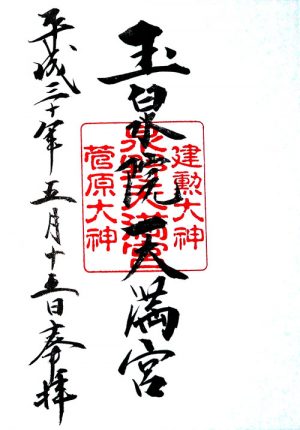 建勲大神
玉泉院天満宮
菅原大神
平成三十年五月十五日奉拝